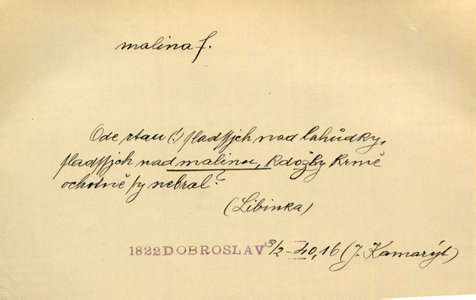 malina f.
Ode rtau (!) sladssjch nad lahůdky,
sladssjch nad malinu, kdožby krmě
ochotně sy nebral?
(Libinka)
1822 DOBROSLAV 3/2 - 40,16 (J. Kamarýt)